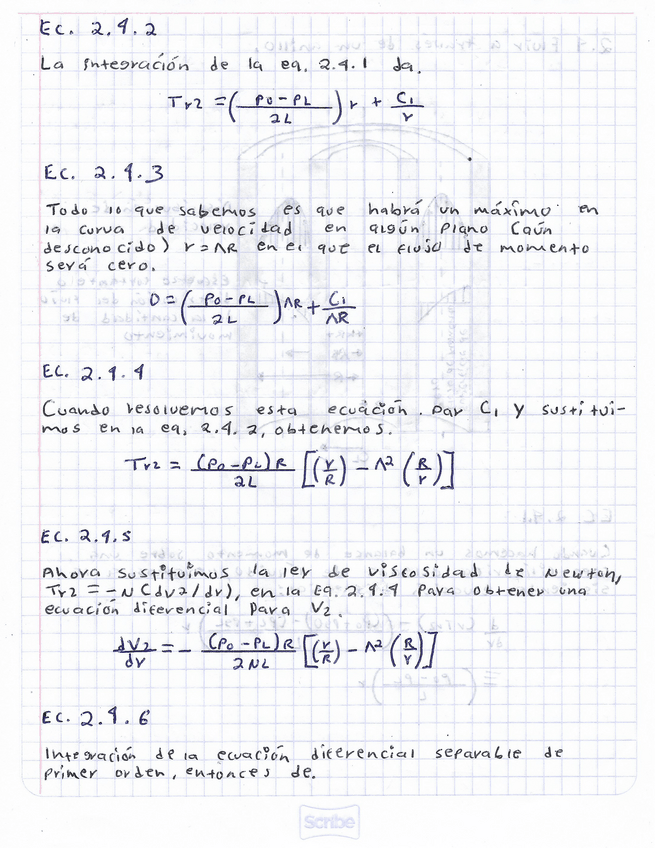 Ec. 2.4.2
La integración de la eq. 2.4.1 da.
Tr2 = ( P0 - PL / 2L ) r + C1 / r
Ec. 2.4.3
Todo lo que sabemos es que habrá un máximo en
la curva de velocidad en algún plano (aún
desconocido) r = ΛR en el que el flujo de momento
será cero.
0 = ( P0 - PL / 2L ) ΛR + C1 / ΛR
Ec. 2.4.4
Cuando resolvemos esta ecuación. Par C1 y sustitui-
mos en la eq, 2.4.2, obtenemos.
Tr2 = (P0 - PL) R / 2L [ ( r / R ) - Λ² ( R / r ) ]
Ec. 2.4.5
Ahora sustituimos la ley de viscosidad de Newton,
Tr2 = - N (dv2/dr), en la Eq. 2.4.4 para obtener una
ecuación diferencial para V2.
dV2 / dr = - (P0 - PL) R / 2NL [ ( r / R ) - Λ² ( R / r ) ]
Ec. 2.4.6
Integración de la ecuación diferencial separable de
primer orden, entonces de.
Scribe